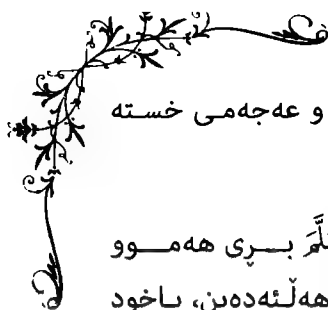 و عەجەمی خستە
بــڕی هەمــوو
هەڵئەدەین، یاخود